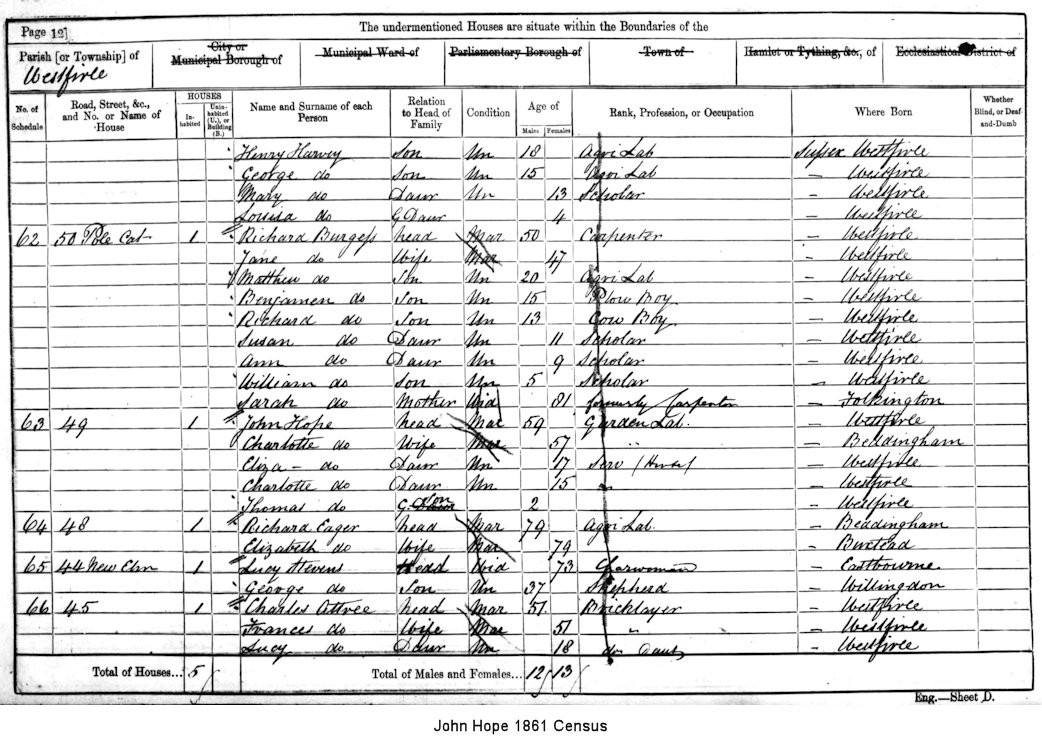 Page 12]
The undermentioned Houses are situate within the Boundaries of the
Parish [or Township] of
Westfirle
City or Municipal Borough of
Municipal Ward of
Parliamentary Borough of
Town of
Hamlet or Tything, &c., of
Ecclesiastical District of
No. of Schedule
Road, Street, &c., and No. or Name of House
HOUSES
Inhabited
Uninhabited (U.), or Building (B.)
Name and Surname of each Person
Relation to Head of Family
Condition
Age of
Males Females
Rank, Profession, or Occupation
Where Born
Whether Blind, or Deaf-and-Dumb
Henry Harvey Son Un 18 Agri Lab Sussex Westfirle
George do Son Un 15 Agri Lab — Westfirle
Mary do Daur Un 13 Scholar — Westfirle
Louisa do G Daur 4 — Westfirle
62 50 Pole Cat 1 Richard Burgess head Mar 50 Carpenter — Westfirle
Jane do Wife Mar 47 — Westfirle
Matthew do Son Un 20 Agri Lab — Westfirle
Benjamen do Son Un 15 Plow Boy — Westfirle
Richard do Son Un 13 Cow Boy — Westfirle
Susan do Daur Un 11 Scholar — Westfirle
Ann do Daur Un 9 Scholar — Westfirle
William do Son Un 5 Scholar — Westfirle
Sarah do Mother Wid 81 formerly Carpenter — Folkington
63 49 1 John Hope head Mar 59 Garden Lab. — Westfirle
Charlotte do Wife Mar 57 " — Beddingham
Eliza — do Daur Un 17 Serv (House) — Westfirle
Charlotte do Daur Un 15 " — Westfirle
Thomas do G. Son 2 — Westfirle
64 48 1 Richard Eager head Mar 79 Agri Lab. — Beddingham
Elizabeth do Wife Mar 79 — Buxtead
65 44 New Elm 1 Lucy Stevens Head Wid 73 Charwoman — Eastbourne
George do Son Un 37 Shepherd — Willingdon
66 45 1 Charles Attree head Mar 51 Bricklayer — Westfirle
Frances do Wife Mar 51 " — Westfirle
Lucy do Daur Un 18 do — Westfirle
Total of Houses... 5
Total of Males and Females... 12 13
Eng.—Sheet D.
John Hope 1861 Census